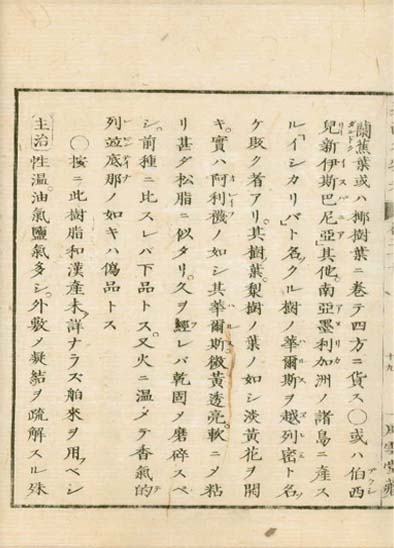 蘭蕉葉或ハ椰樹葉ニ卷テ四方ニ貨ス〇或ハ伯西
兒新伊斯巴尼亞其他南亞墨利加洲ノ諸島ニ産ス
ル「イシカリバ」ト名クル樹ノ華爾斯ヲ越列密ト名ツ
ケ販ク者アリ其樹葉梨樹ノ葉ノ如シ淡黄花ヲ開
キ實ハ阿利襪ノ如シ其華爾斯微黄透亮軟ニメ粘
リ甚ダ松脂ニ似タリ久ヲ經レバ乾固メ磨碎スベ
シ前種ニ比スレバ下品トス又火ニ温メテ香氣的
列竝底那ノ如キハ僞品トス
〇按ニ此樹脂和漢産未詳ナラズ舶來ヲ用フベシ
主治 性温油氣鹽氣多シ外敷メ凝結ヲ疏解スル殊
十九